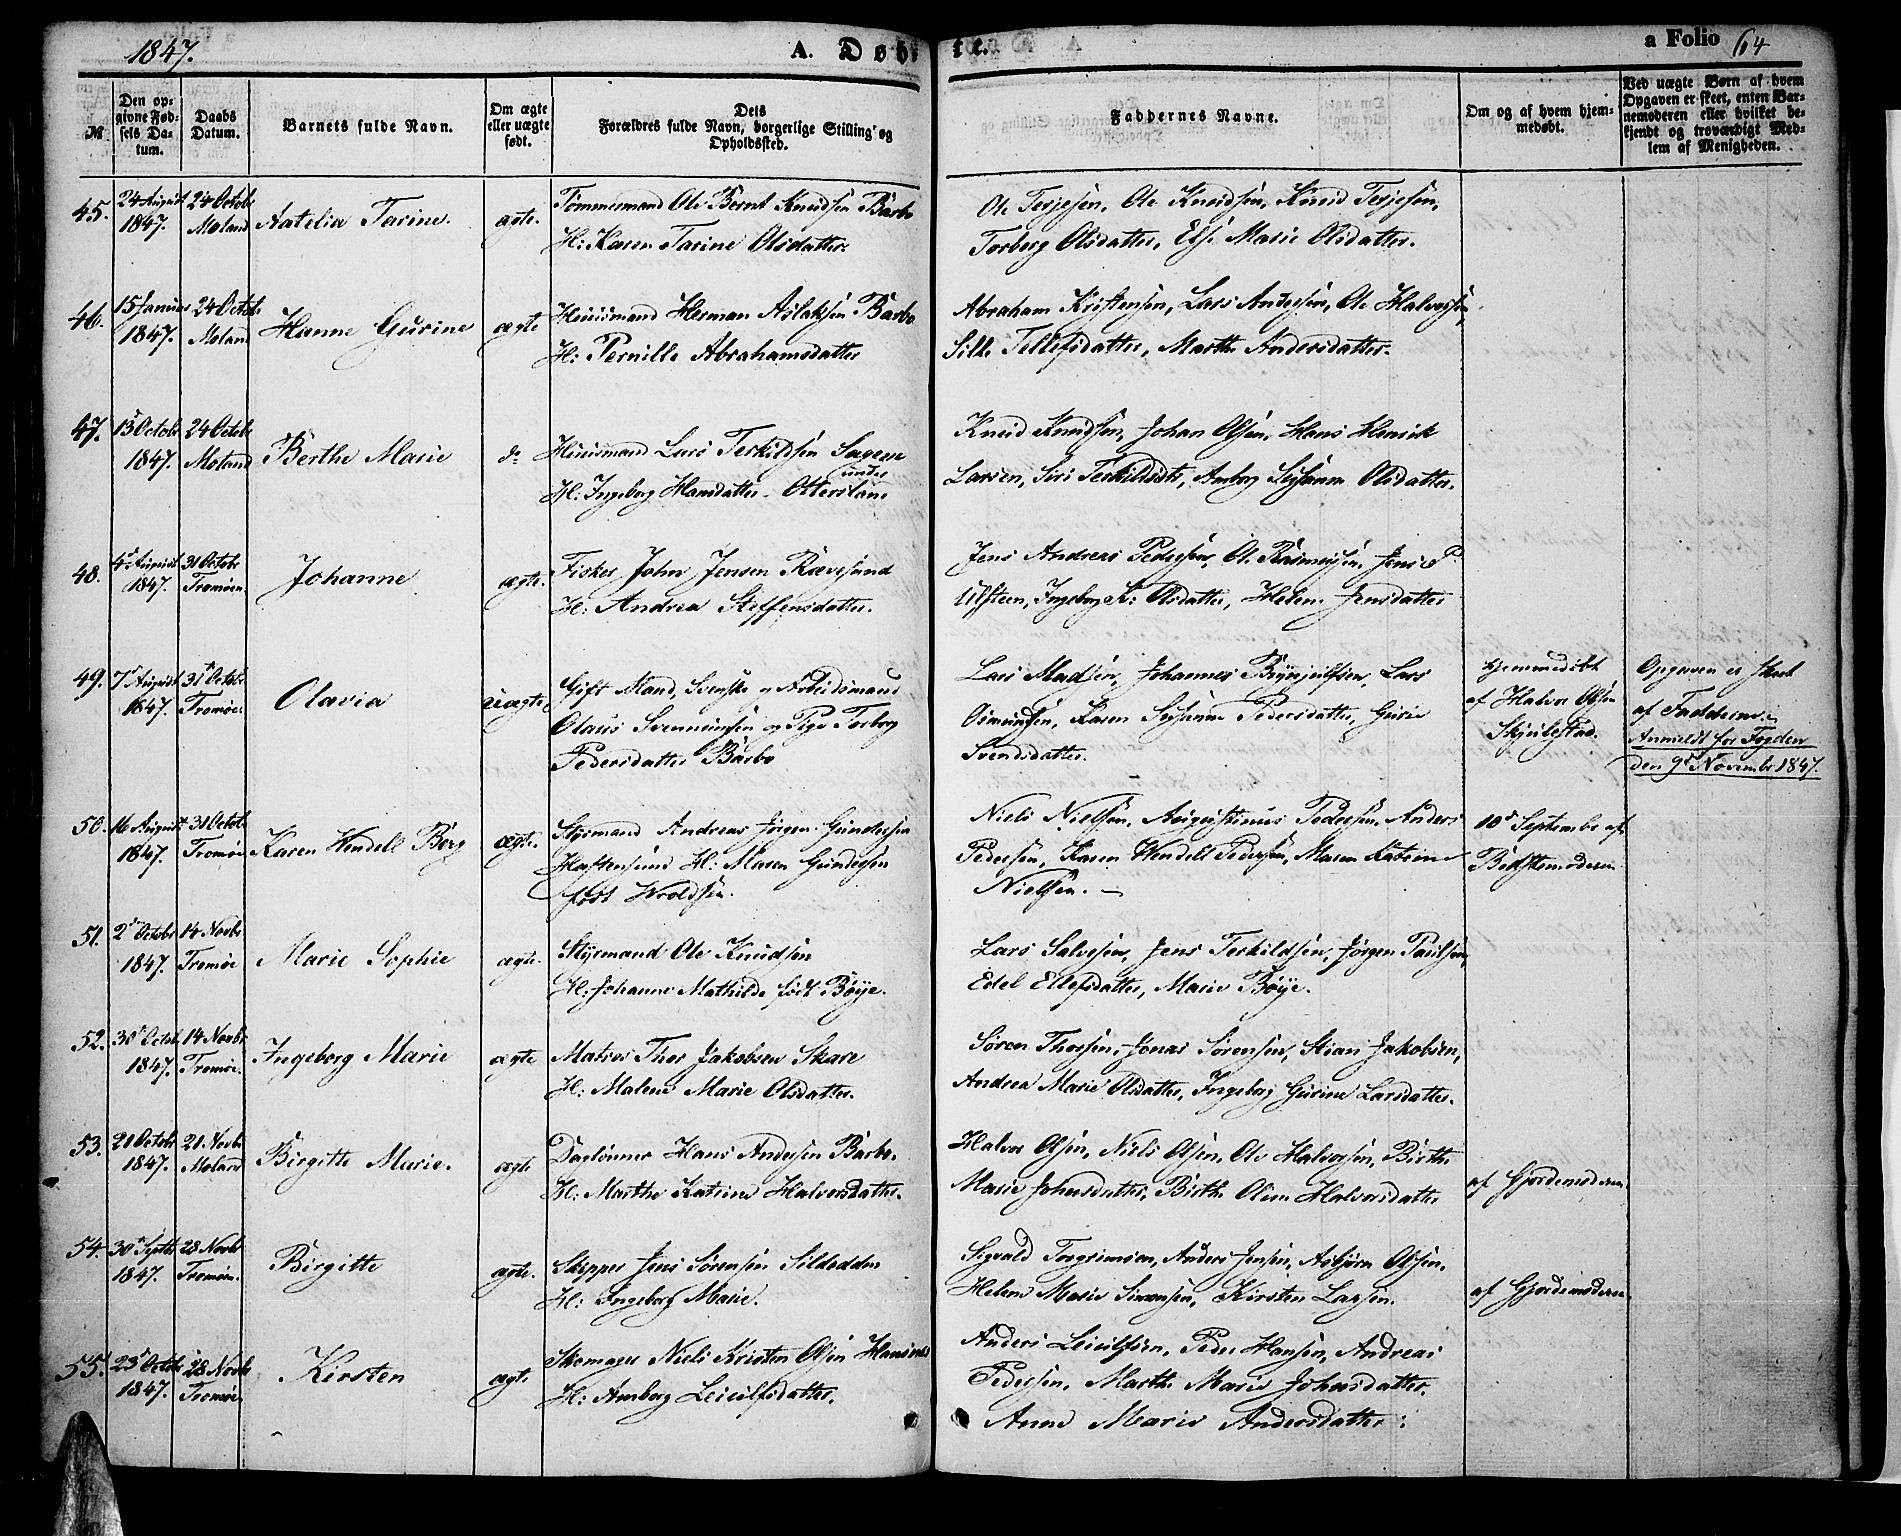 1847.
A. Døbte.
a Folio 64
№
Den opgivne Fødsels Datum.
Daabs Datum.
Barnets fulde Navn.
Om ægte eller uægte født.
Dets Forældres fulde Navn, borgerlige Stilling og Opholdssted.
Faddernes Navne.
Om og af hvem hjemmedøbt.
Ved uægte Børn af hvem Opgaven er skeet, enten Barnemoderen eller hvilket bekjendt og troværdigt Medlem af Menigheden.
45. 24 August 1847. 24 Octobr Moland
Natelia Tarine. ægte.
Tømmermand Ole Bernt Knudsen Barbo
H: Karen Tarine Olsdatter.
Ole Terjesen, Ole Knudsen, Knud Terjesen,
Torberg Olsdatter, Else Marie Olsdatter.
46. 15 Januar 1847. 24 Octobr Moland
Hanne Gurine ægte
Huusmand Herman Aslaksen Barbo
H: Pernille Abrahamsdatter
Abraham Kristensen, Lars Andersen, Ole Halvorsen,
Silke Tellefsdatter, Marthe Andersdatter.
47. 13 Octobr 1847. 24 Octobr Moland
Berthe Marie do
Huusmand Lars Terkildsen Sagene
under
H: Ingeborg Hansdatter Otterslan
Knud Knudsen, Johan Olsen, Hans Henrik
Larsen, Siri Terkildsdt, Amborg Susanne Olsdatter.
48. 4 August 1847. 31 Octobr Tromøen
Johanne ægte.
Fisker John Jensen Rævesand
H. Andrea Steffensdatter.
Jens Andreas Pedersen, O. Rasmussen, Jens P.
Ulsteen, Ingeborg K: Olsdatter, Helene Jensdatter
49. 7 August 1847. 31 Octobr Tromøe
Olavia uægte
Gift Mand, Svenske og Arbeidsmand
Olaus Svenningsen og Pige Torborg
Pedersdatter Barbo
Lars Madsen, Johannes Brynjulfsen, Lars
Osmundsen, Karen Susanne Pedersdatter, Gurie
Svendsdatter.
hjemmedøbt
af Halvor Olsen
Skjulestad.
Opgaven er skeet
af Fadderne.
Anmeldt for Fogden
den 9 Novembr 1847.
50. 16 August 1847. 31 Octobr Tromøe
Karen Wendell Berg ægte.
Styrmand Andreas Jørgen Gundersen
Hastensund H: Maren Gundersen
født Woldsen.
Niels Nielsen, Augustinus Pedersen, Anders
Pedersen, Karen Wendell Pedersen, Maren Katrine
Nielsen.
10 Septembr af
Bedstemoderen
51. 2 Octobr 1847. 14 Novbr Tromøe
Marie Sophie ægte.
Styrmand Ole Knudsen
H: Johanne Mathilde født Bøye.
Lars Salvesen, Jens Terkildsen, Jørgen Paulsen,
Edel Ellefsdatter, Marie Bøye.
52. 30 Octobr 1847. 14 Novbr Tromøe.
Ingeborg Marie ægte
Matros Thor Jakobsen Skare
H: Malene Marie Olsdatter.
Søren Thorsen, Jonas Sørensen, Stian Jakobsen,
Andrea Marie Olsdatter, Ingeborg Gurine Larsdatter.
53. 21 Octobr 1847. 21 Novbr Moland
Birgitte Marie. ægte
Daglønner Hans Andersen Barbo.
H: Marthe Katrine Halvorsdatter.
Halvor Olsen, Niels Olsen, Ole Halvorsen, Birthe
Marie Johnsdatter, Birthe Oline Halvorsdatter
af Gjordemoderen
54. 30 Septbr 1847. 28 Novbr Tromøen.
Birgitte ægte.
Skipper Jens Sørensen Sildodden
H: Ingeborg Marie.
Sigvald Torgrimsen, Anders Jensen, Asbjørn Olsen,
Helene Marie Simonsen, Kirsten Larsen.
af Gjordemoderen
55. 23 Octobr 1847. 28 Novbr Tromøe.
Kirsten ægte
Skomager Niels Kristen Olsen
H: Amborg Leiulfsdatter.
Anders Leiulfsen, Peder Hansen, Andreas
Pedersen, Marthe Marie Johnsdatter,
Anne Marie Andersdatter.